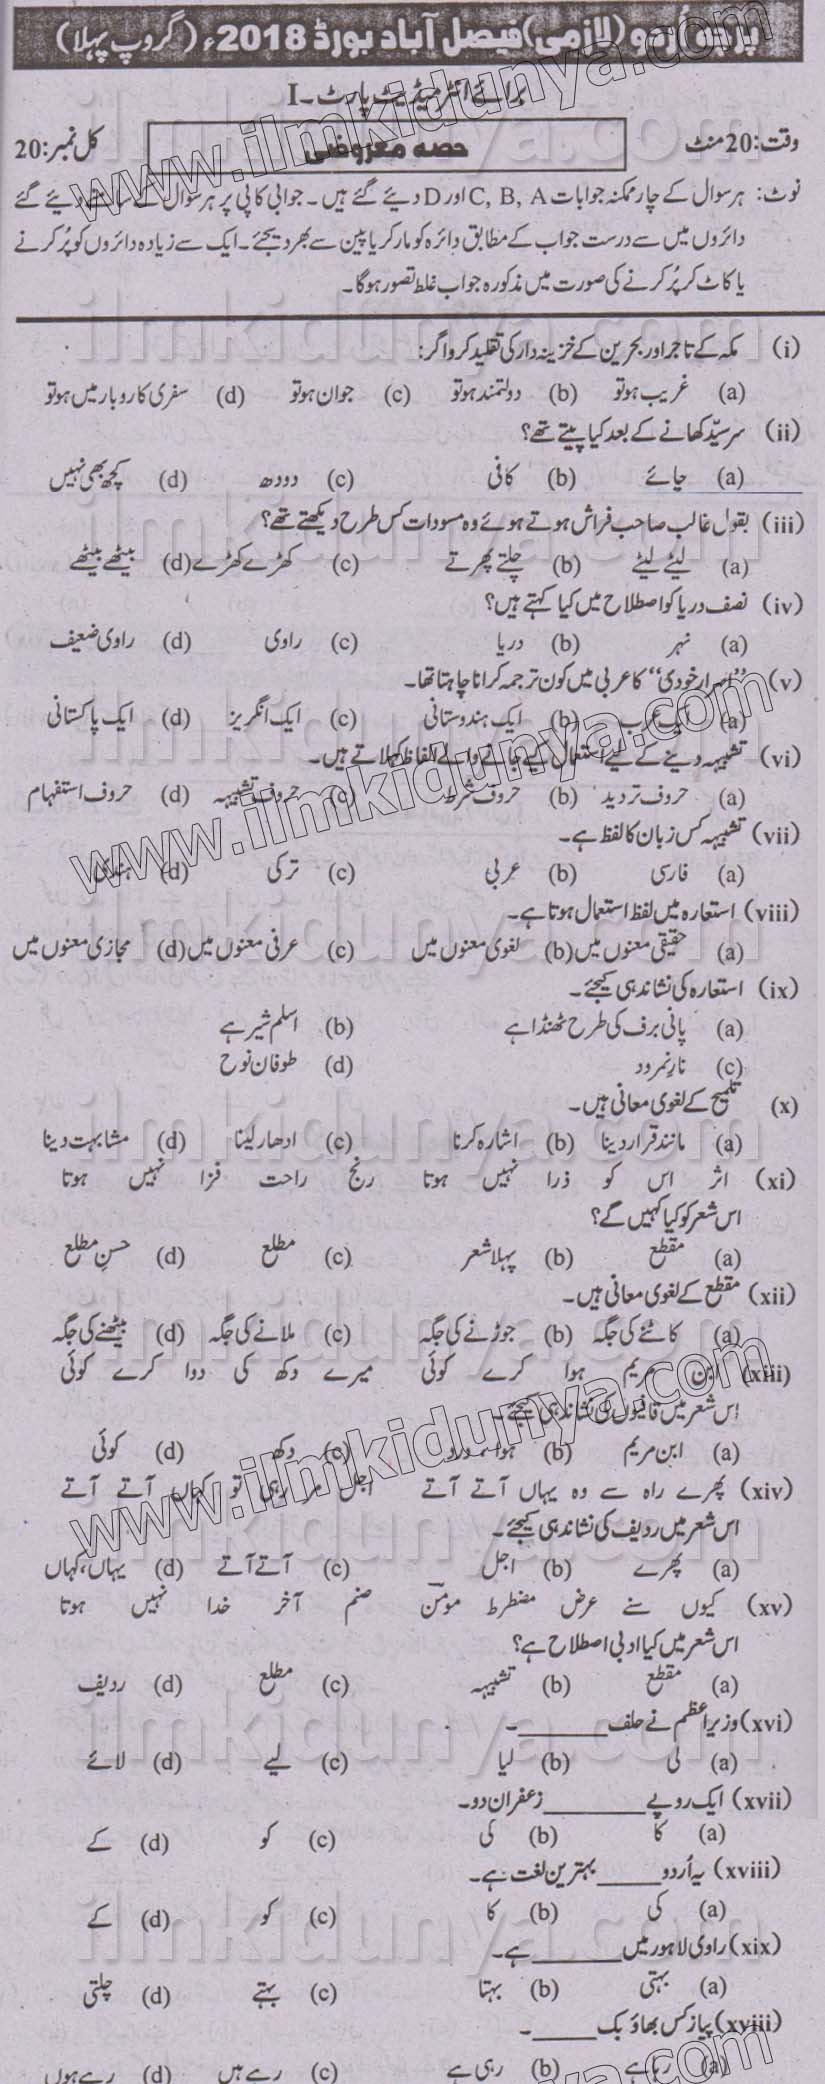 پرچہ اُردو (لازمی) فیصل آباد بورڈ 2018ء (گروپ پہلا)
برائے انٹرمیڈیٹ پارٹ۔I
وقت: 20 منٹ
حصہ معروضی
کل نمبر: 20
نوٹ: ہر سوال کے چار ممکنہ جوابات C, B, A اور D دیئے گئے ہیں۔ جوابی کاپی پر ہر سوال کے سامنے دیئے گئے
دائروں میں سے درست جواب کے مطابق دائرہ کو مارکر یا پین سے بھر دیجئے۔ ایک سے زیادہ دائروں کو پُر کرنے
یا کاٹ کر پُر کرنے کی صورت میں مذکورہ جواب غلط تصور ہوگا۔
(i) مکہ کے تاجر اور بحرین کے خزینہ دار کی تقلید کرو اگر:
(a) غریب ہو تو (b) دولتمند ہو تو (c) جوان ہو تو (d) سفری کاروبار میں ہو تو
(ii) سرسیّد کھانے کے بعد کیا پیتے تھے؟
(a) چائے (b) کافی (c) دودھ (d) کچھ بھی نہیں
(iii) بقول غالب صاحب فراش ہوتے ہوئے وہ مسودات کس طرح دیکھتے تھے؟
(a) لیٹے لیٹے (b) چلتے پھرتے (c) کھڑے کھڑے (d) بیٹھے بیٹھے
(iv) نصف دریا کو اصطلاح میں کیا کہتے ہیں؟
(a) نہر (b) دریا (c) راوی (d) راوی ضعیف
(v) ”اسرار خودی“ کا عربی میں کون ترجمہ کرانا چاہتا تھا۔
(a) ایک عرب (b) ایک ہندوستانی (c) ایک انگریز (d) ایک پاکستانی
(vi) تشبیہہ دینے کے لیے استعمال کیے جانے والے الفاظ کہلاتے ہیں۔
(a) حروف تردید (b) حروف شرط (c) حروف تشبیہہ (d) حروف استفہام
(vii) تشبیہہ کس زبان کا لفظ ہے۔
(a) فارسی (b) عربی (c) ترکی (d) ہندی
(viii) استعارہ میں لفظ استعمال ہوتا ہے۔
(a) حقیقی معنوں میں (b) لغوی معنوں میں (c) عرفی معنوں میں (d) مجازی معنوں میں
(ix) استعارہ کی نشاندہی کیجئے۔
(a) پانی برف کی طرح ٹھنڈا ہے (b) اسلم شیر ہے
(c) نارِ نمرود (d) طوفان نوح
(x) تلمیح کے لغوی معانی ہیں۔
(a) مانند قرار دینا (b) اشارہ کرنا (c) ادھار لینا (d) مشابہت دینا
(xi) اثر اس کو ذرا نہیں ہوتا رنج راحت فزا نہیں ہوتا
اس شعر کو کیا کہیں گے؟
(a) مقطع (b) پہلا شعر (c) مطلع (d) حسنِ مطلع
(xii) مقطع کے لغوی معانی ہیں۔
(a) کاٹنے کی جگہ (b) جوڑنے کی جگہ (c) ملانے کی جگہ (d) بیٹھنے کی جگہ
(xiii) ابن مریم ہوا کرے کوئی میرے دکھ کی دوا کرے کوئی
اس شعر میں قافیوں کی نشاندہی کیجئے۔
(a) ابن مریم (b) ہوا، (c) دکھ (d) کوئی
(xiv) پھرے راہ سے وہ یہاں آتے آتے اجل مر رہی تو کہاں آتے آتے
اس شعر میں ردیف کی نشاندہی کیجئے۔
(a) پھرے (b) اجل (c) آتے آتے (d) یہاں، کہاں
(xv) کیوں سنے عرض مضطرط مومنؔ صنم آخر خدا نہیں ہوتا
اس شعر میں کیا ادبی اصطلاح ہے؟
(a) مقطع (b) تشبیہہ (c) مطلع (d) ردیف
(xvi) وزیرِ اعظم نے حلف ______۔
(a) لی (b) لیا (c) لیے (d) لائے
(xvii) ایک روپے ______ زعفران دو۔
(a) کا (b) کی (c) کو (d) کے
(xviii) یہ اُردو ______ بہترین لغت ہے۔
(a) کی (b) کا (c) کو (d) کے
(xix) راوی لاہور میں ______ ہے۔
(a) بہتی (b) بہتا (c) بہتے (d) چلتی
(xviii) پیاز کس بھاؤ بک ______۔
(a) رہا ہے (b) رہی ہے (c) رہے ہیں (d) رہے ہوں
www.ilmkidunya.com